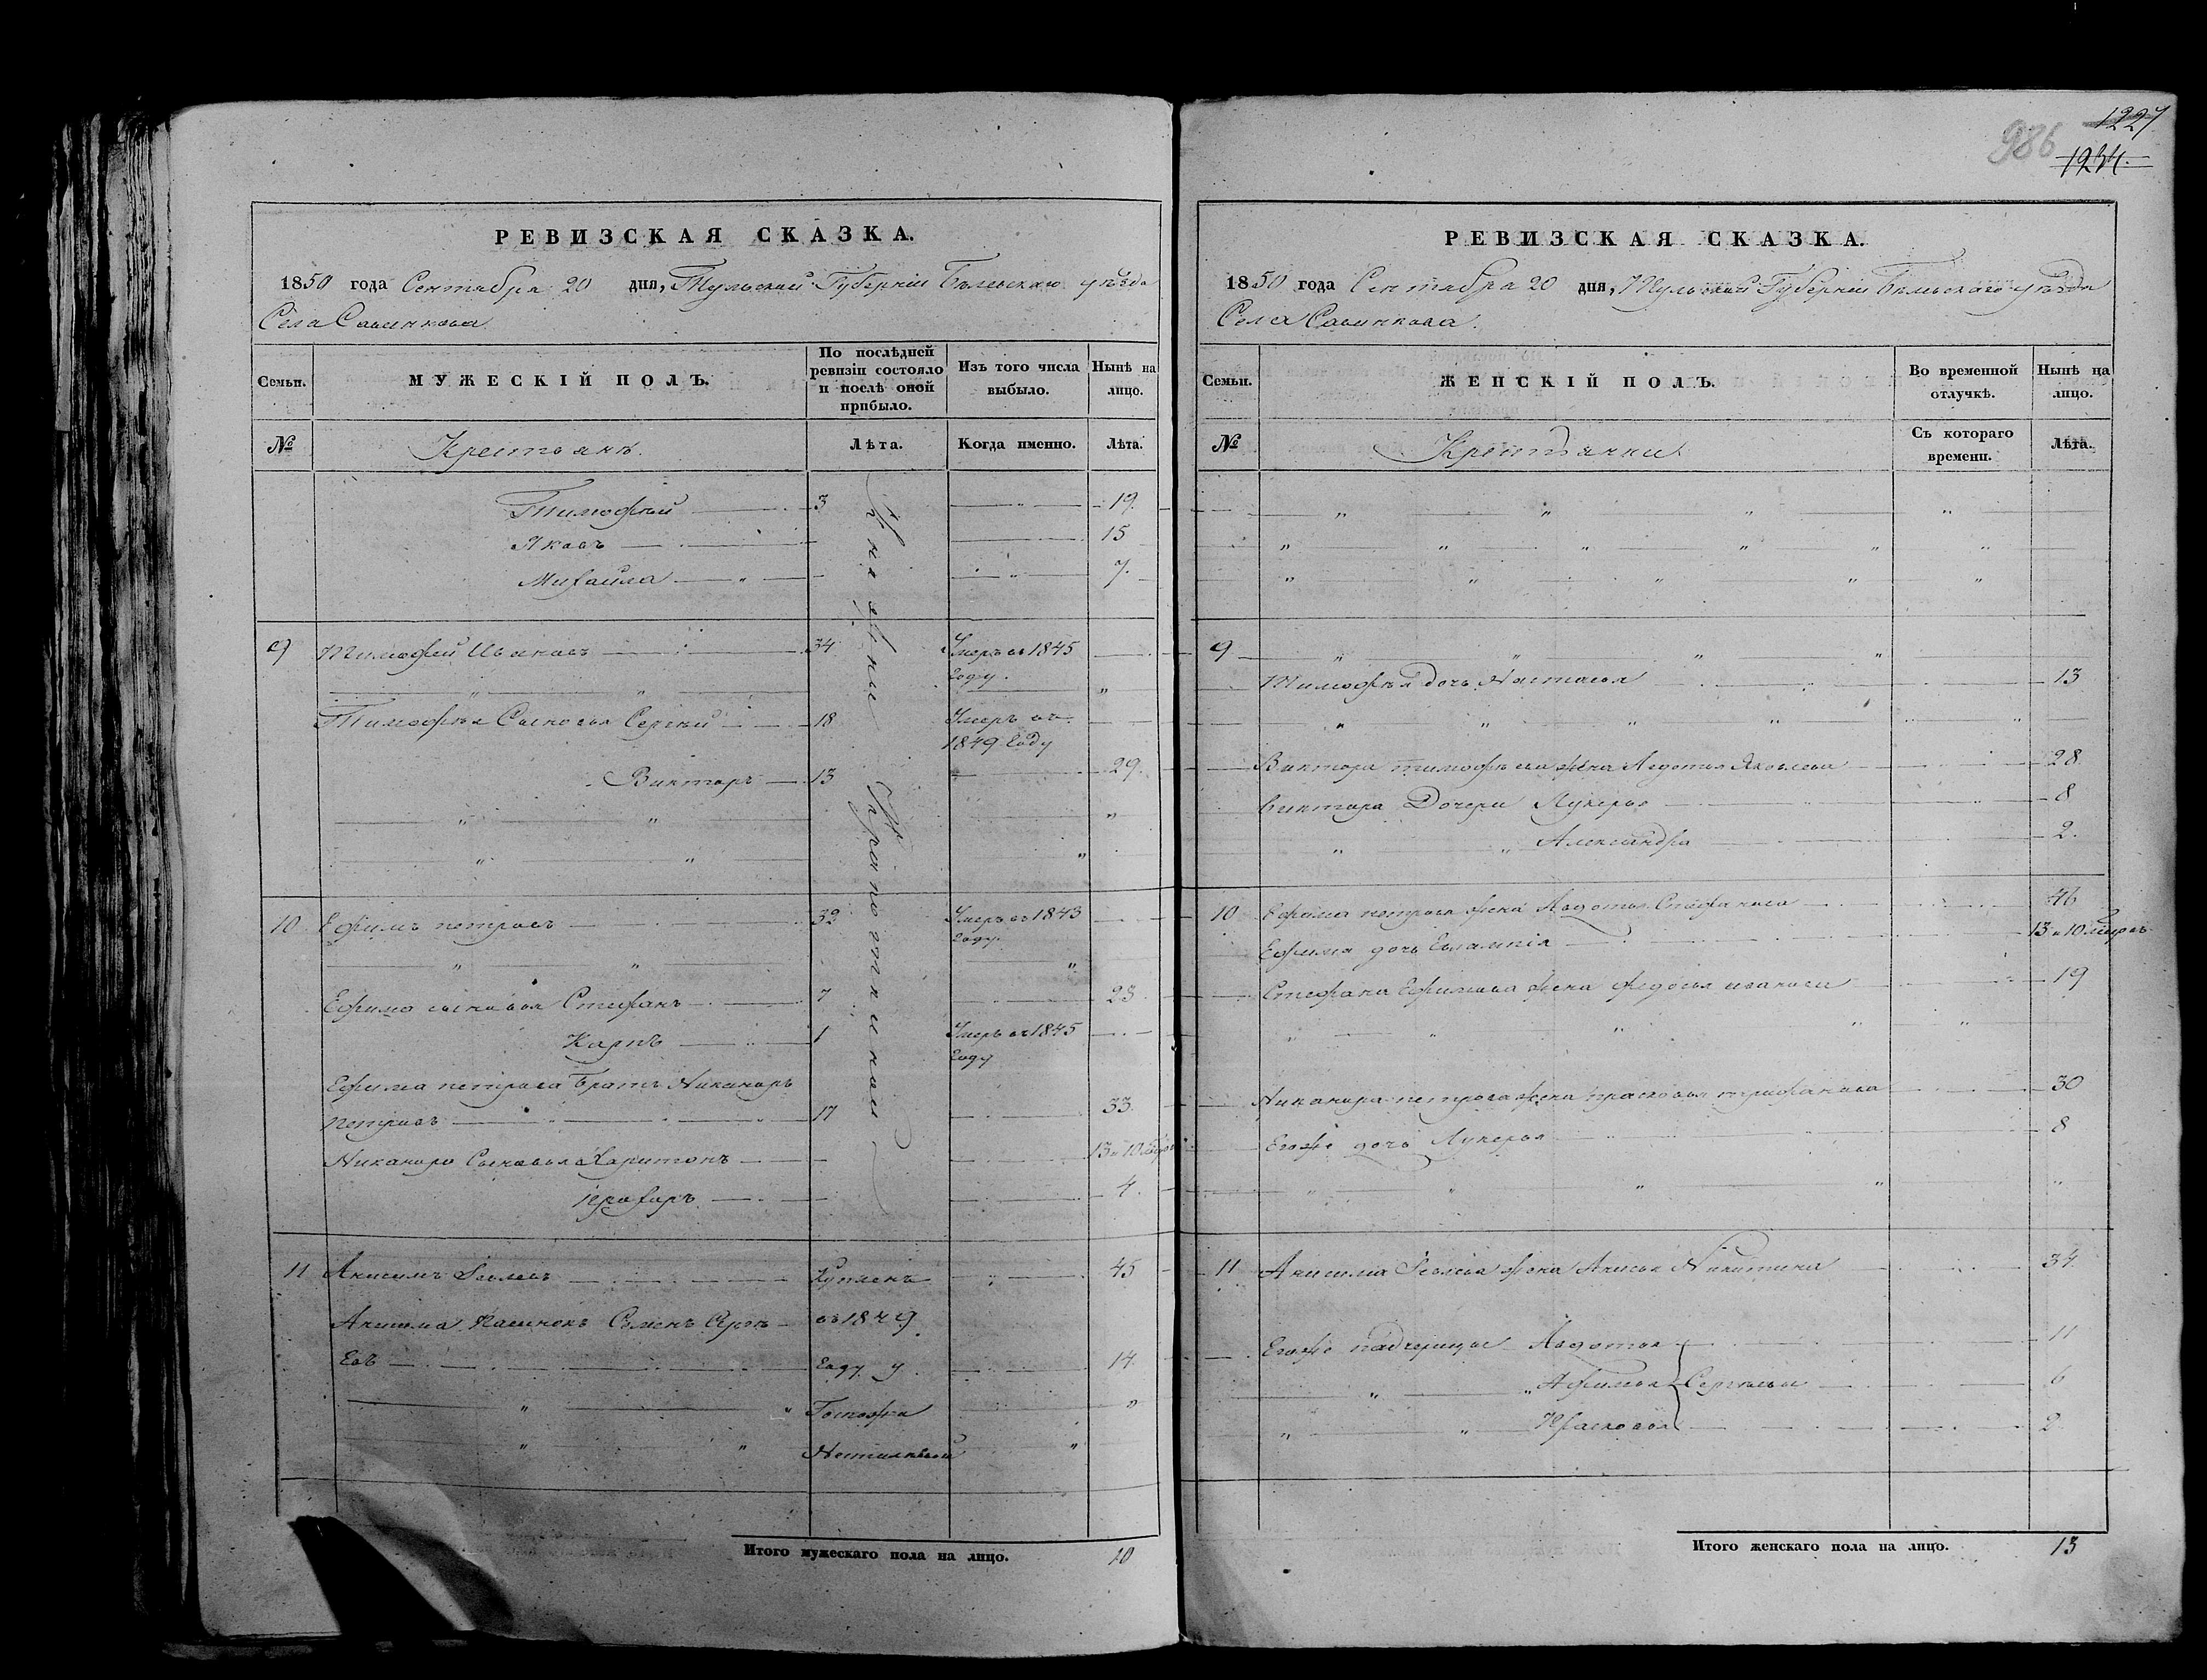 986
1227
1234.
РЕВИЗСКАЯ СКАЗКА.
1850 года Сентября 20 дня, Тульской Губерніи Бѣлевскаго уѣзда
Села Савинкова
Семьи. МУЖЕСКІЙ ПОЛЪ. По послѣдней ревизіи состояло и послѣ оной прибыло. Изъ того числа выбыло. Нынѣ на лицо.
№ Крестьянѣ. Лѣта. Когда именно. Лѣта.
Тимофѣй 3 19.
Яковъ 15
Михайла 7.
9 Тимофей Иваковъ 34 Умеръ въ 1845
Году.
Тимофѣя Сыновья Сергѣй 18 Умеръ въ
1849 Году
Викторъ 13 29.
10 Ефимъ петровъ 32 Умеръ въ 1843
Году.
Ефима сыновья Стефанъ 7 23.
Карпъ 1 Умеръ въ 1845
Году
Ефима петрова Братъ Никаноръ
петровъ 17 33.
Никанора Сыновья Харитонъ 13 и 10
Прохоръ 4.
11 Анисимъ Купленъ 45
Анисима Пасынокъ Семенъ Сергѣ
въ 1849
Евъ Году у 14.
Госпожи
Княжни Крапоткиной
Итого мужескаго пола на лицо. 10
РЕВИЗСКАЯ СКАЗКА.
1850 года Сентября 20 дня, Тульской Губерніи Бѣлевскаго уѣзда
Села Савинкова.
Семьи. ЖЕНСКІЙ ПОЛЪ. Во временной отлучкѣ. Нынѣ на лицо.
№ Крестьянки Съ котораго времени. Лѣта.
9
Тимофѣя дочь Настасья 13
Виктора тимофѣева жена Авдотья Яковлева 28
Виктора Дочери Лукерья 8
Александра 2.
10 Ефима петрова жена Авдотья Стефанова 46
Ефима дочь Евлампія 13 и 10
Стефана Ефимова жена Федосья иванова 19
Никанора петрова жена прасковья трифанова 30
Егожъ дочь Лукерья 8
11 Анисима жена Анисья Никитина 34.
Егожъ падчерицы Авдотья 11
Афимья Сергѣевы 6
Прасковья 2
Итого женскаго пола на лицо. 13